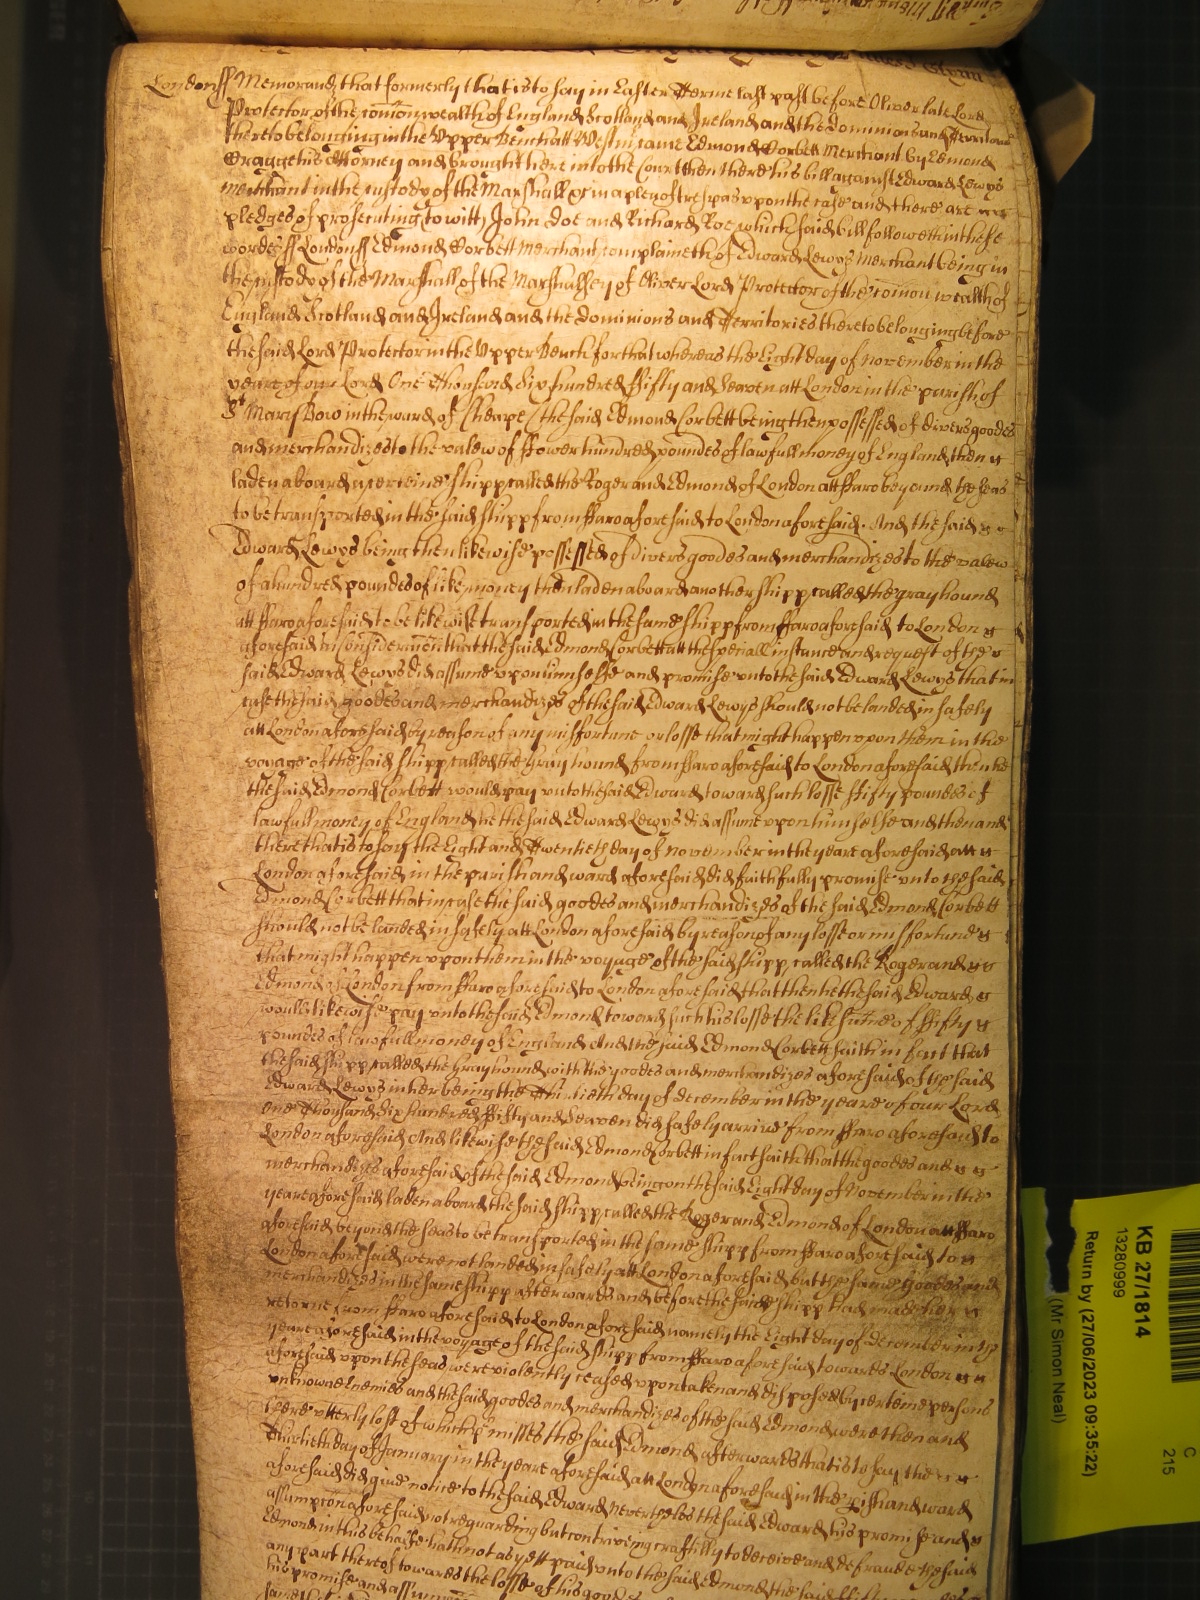 Londonss Memorand that formerly that is to say in Easter Terme last past before Oliver late Lord
Protector of the Comonwealth of England Scotland and Ireland and the Dominions and Territories
thereto belonging in the Upper Bench att Westm came Edmond Corbett Merchant by Edmond
Bragge his Attorney and brought here into the Court then there his bill against Edward Lewys
Merchant in the custody of the Marshall &c in a plea of trespas upon the case and there are
pledges of prosecuting to witt John Doe and Richard Roe which said bill followeth in these
wordes ss Londonss Edmond Corbett Merchant complaineth of Edward Lewys Merchant being in
the custody of the Marshall of the Marshallsey of Oliver Lord Protector of the Comon wealth of
England Scotland and Ireland and the Dominions and Territories thereto belonging before
the said Lord Protector in the Upper Bench for that whereas the Eight day of November in the
yeare of our Lord One Thousand Six hundred Fifty and Seaven att London in the parish of
St Mary Bow in the ward of Cheape the said Edmond Corbett being then possessed of divers goodes
and merchandizes to the valew of Fower hundred poundes of lawfull money of England then
laden aboard a certeine shipp called the Roger and Edmond of London att Faro beyound the seas
to be transported in the said shipp from Faro aforesaid to London aforesaid. And the said
Edward Lewys being then likewise possessed of divers goodes and merchandizes to the valew
of a hundred poundes of like money then laden aboard another shipp called the Grayhound
att Faro aforesaid to be likewise transported in the same shipp from Faro aforesaid to London
aforesaid in consideracon that the said Edmond Corbett att the speciall instance and request of the
said Edward Lewys did assume upon himselfe and promise unto the said Edward Lewys that in
case the said goodes and merchandizes of the said Edward Lewys should not be landed in safely
att London aforesaid by reason of any misfortune or losse that might happen upon them in the
voyage of the said shipp called the Grayhound from Faro aforesaid to London aforesaid then he
the said Edmond Corbett would pay unto the said Edward toward such losse Fifty poundes of
lawfull money of England he the said Edward Lewys did assume upon himselfe and then and
there that is to say the Eight and Twentieth day of November in the yeare aforesaid att
London aforesaid in the parish and ward aforesaid did faithfully promise unto the said
Edmond Corbett that in case the said goodes and merchandizes of the said Edmond Corbett
should not be landed in safely att London aforesaid by reason of any losse or misfortune
that might happen upon them in the voyage of the said shipp called the Roger and
Edmond of London from Faro aforesaid to London aforesaid that then he the said Edward
would likewise pay unto the said Edmond toward such his losse the like sume of Fifty
poundes of lawfull money of England And the said Edmond Corbett saith in fact that
the said shipp called the Grayhound with the goodes and merchandizes aforesaid of the said
Edward Lewys in her being the Thirtieth day of December in the yeare of our Lord
One Thousand Six hundred Fifty and Seaven did safely arrive from Faro aforesaid to
London aforesaid And likewise the said Edmond Corbett in fact saith that the goodes and
merchandizes aforesaid of the said Edmond being on the said Eight day of November in the
yeare aforesaid laden aboard the said shipp called the Roger and Edmond of London att Faro
aforesaid beyond the seas to be transported in the same shipp from Faro aforesaid to
London aforesaid were not landed in safely att London aforesaid but the same goodes and
merchandizes in the same shipp afterwards and before the said shipp had made her
retorne from Faro aforesaid to London aforesaid namely the Eight day of December in the
yeare aforesaid in the voyage of the said shipp from Faro aforesaid towards London
aforesaid upon the seas were violently ceased upon taken and disposed by certeine persons
unknowne Enemies and the said goodes and merchandizes of the said Edmond were then and
there utterly lost of which pmisses the said Edmond afterwards that is to say the
Thirtieth day of January in the yeare aforesaid att London aforesaid in the pish and ward
aforesaid did give notice to the said Edward Neverthelес the said Edward his promise and
assumpcon aforesaid not reguarding but contriveing craftilly to deceive and defraude the said
Edmond in this behalfe hath not as yett paid unto the said Edmond the said Fifty
any part thereof towards the losse of his goodes
his promise and assumpcon
KB 27/1814
13280999
Return by (27/06/2023 09:35:22)
(Mr Simon Neal)
C
215